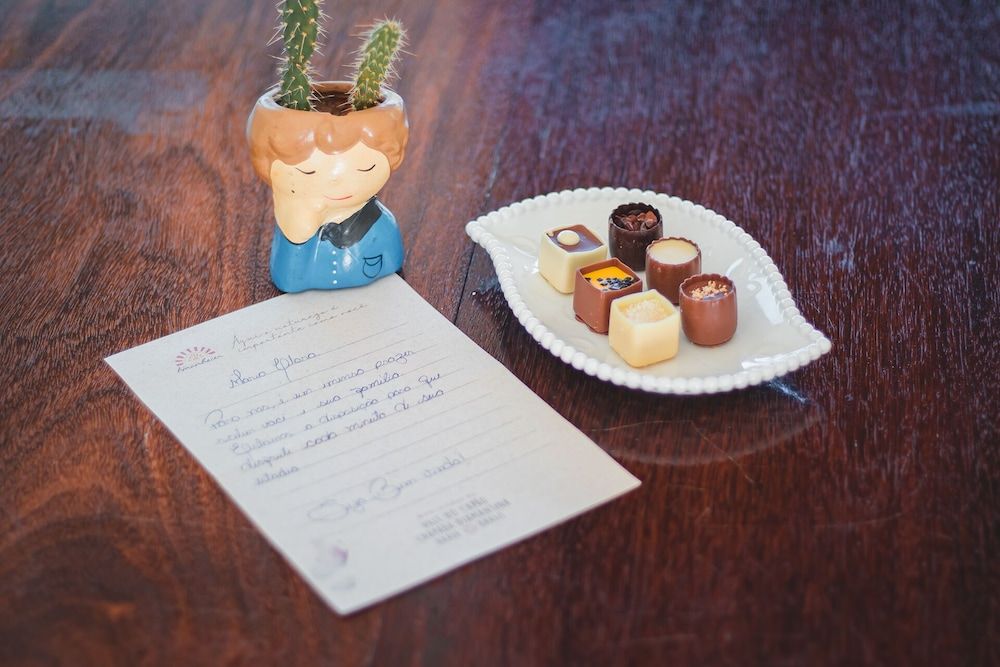 Aqui a natureza é
importante como você
Amanhecer
Maria Clara
Para nós, é um imenso prazer
receber você e sua família.
Estamos a disposição para que
desfrute cada minuto de sua
estadia
Seja Bem vinda!
VALE DO CAPÃO
CHAPADA DIAMANTINA
BAHIA BRASIL